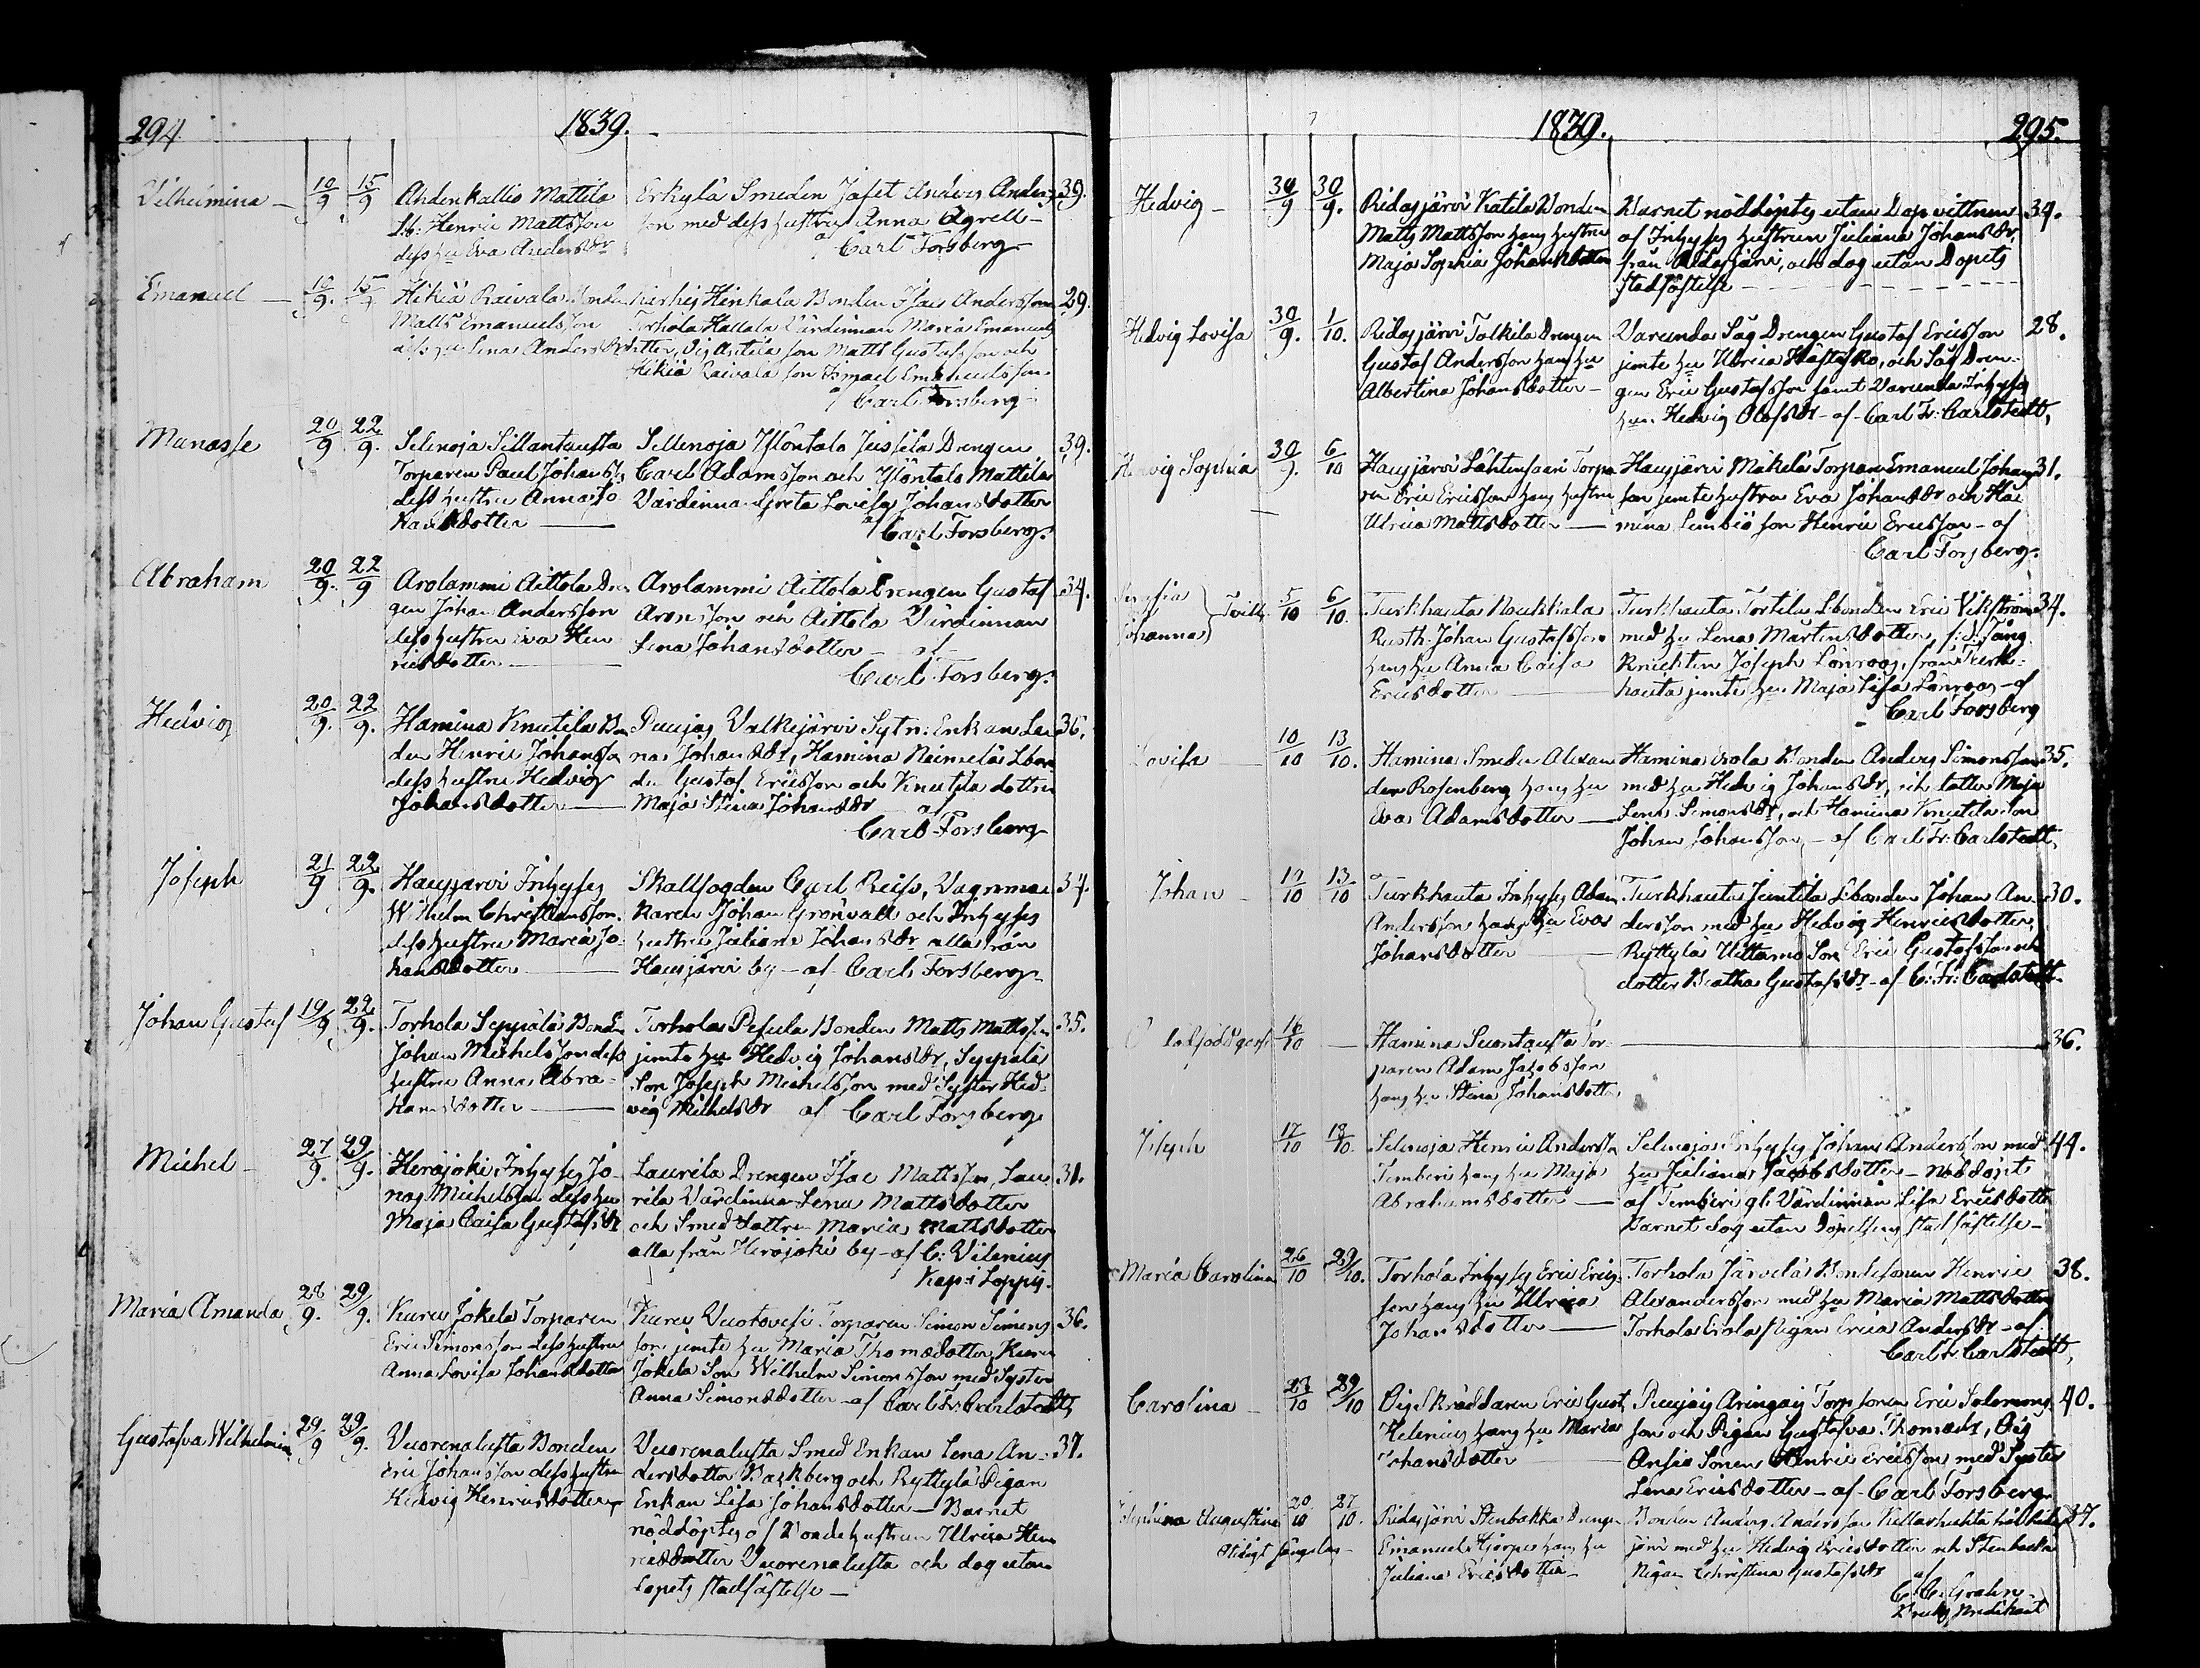 294.
1839.
Vilhelmina — 10/9 15/9 Ahdenkallio Mattila Erkylä Smeden Jafet Anders Anders- 39.
Lb: Henric Mattsson son med dess hustru Anna Agrell —
dess hu Eva Andersdr af Carl Forsberg —
Emanuel — 10/9. 15/9 Hikiä Raivala Bonden Karhis Hinkala Bonden Isac Andersson 29.
Matts Emanuelsson Torhola Hallala Värdinnan Maria Emanuels
dess hu Lena Andersdotter dotter, Oig Antila son Matts Gustafsson och
Hikiä Raivala son Ismael Emanuelsson
af Carl Forsberg —
Manasse 20/9 22/9. Selenoja Sillantausta Selenoja Yföntala Jussila Drengen 39.
Torparen Paul Johans- Carl Adamsson och Yföntala Mattila
dess hustru Anna Jo- Vardinna Greta Lovisa Johansdotter
hansdotter — af Carl Forsberg.
Abraham 20/9. 22/9 Arolammi Aittola Dren Arolammi Aittola Drengen Gustaf 34.
gen Johan Andersson Aronsson och Aittola Värdinnan
dess hustru Eva Hen Lena Johansdotter — af
ricsdotter — Carl Forsberg.
Hedvig 20/9. 22/9. Hamina Knutila Bon Puujas Valkjärvi Sytn: Enkan Le 36.
den Henric Johansson na Johansdr, Hamina Heinselä Lbon
dess hustru Hedvig den Gustaf Ericsson och Knutila dottren
Johansdotter — Maja Stina Johansdr af
Carl Forsberg —
Joseph 21/9 22/9. Hausjärvi Inhyses Skallfogden Carl Reis, Vagnma- 34.
Wilhelm Christiansson karen Johan Grönvall och Inhyses
dess hustru Maria Jo- hustru Juliana Johansdr alla från
hansdotter — Hausjärvi by — af Carl Forsberg —
Johan Gustaf 19/9 22/9. Torhola Seppälä Bonden Torhola Pesula Bonden Matts Mattsson 35.
Johan Michelsson dess jemte hu Hedvig Johansdr, Seppälä
hustru Anna Abra- Son Joseph Michelsson med Syster Hed-
hamsdotter — vig Michelsdr af Carl Forsberg
Michel — 27/9. 29/9. Herajoki Inhyses Jo- Laurila Drengen Isac Mattsson, Lau 31.
nas Michelsson dess hu rila Värdinna Lena Mattsdotter
Maja Caisa Gustafsdr och Smed dottren Maria Mattsdotter
alla från Herajoki by — af C: Vilenius
Kap: i Loppis.
Maria Amanda 28/9. 29/9. Kuru Jokela Torparen Kuru Vuotovesi Torparen Simon Simons 36.
Eric Simonsson dess hustru son jemte hu Maria Thomædotter, Kuru
Anna Lovisa Johansdotter Jokela Son Wilhelm Simonsson med Syster
Anna Simonsdotter — af Carl Fr: Carlstedt,
Gustafva Wilhelmina 29/9 29/9. Vuorenalusta Bonden Vuorenalusta Smed Enkan Lena An- 37.
Eric Johansson dess hustru dersdotter Backberg och Ryttylä Pigan
Hedvig Henricsdotter Enkan Lisa Johansdotter — Barnet
nöddöptes af Bonde hustrun Ulrica Hen
ricsdotter Vuorenalusta och dog utan
Dopets stadfästelse —
1839.
295.
Hedvig — 30/9 30/9. Ridasjärvi Katila Bonden Barnet nöddöptes utan Dop vittnen 34.
Matts Mattsson hans hustru af Inhyses hustrun Juliana Johansdr,
Maja Sophia Johansdotter från Ridasjärvi, och dog utan Dopets
stadfästelse —
Hedvig Lovisa 30/9. 1/10. Ridasjärvi Tolkila Drengen Varunda Såg Drengen Gustaf Ericsson 28.
Gustaf Andersson hans hu jemte hu Ulrica Häfälsko, och Såg Dren-
Albertina Johansdotter — gen Eric Gustafsson samt Varunda Inhyses
hu. Hedvig Olofsdr — af Carl Fr: Carlstedt,
Hedvig Sophia 30/9. 6/10 Hausjärvi Lähtensaari Torpa Hausjärvi Mäkelä Torparen Emanuel Johans 31.
ren Eric Ericsson hans hustru son jemte hustru Eva Johansdr och Ha-
Ulrica Mattsdotter — mina Simbiö son Henric Ericsson — af
Carl Forsberg.
Serafia Johannes } Tvill: 5/10 6/10. Turkhauta Noukkala Turkhauta Tortila Lbonden Eric Vikström 34.
Rusth: Johan Gustafsson med hu Lena Mårtensdotter, f:d: Fång
hans hu Anna Caisa knekten Joseph Lönroos, från Turk-
Ericsdotter — hauta jemte hu Maja Lisa Lönroos — af
Carl Forsberg
Lovisa 10/10 13/10. Hamina Smeden Alexan Hamina Erola Bonden Anders Simonsson 35.
der Rosenberg hans hu med hu Hedvig Johansdr, och dotter Maja
Eva Adamsdotter — Lena Simonsdr, och Hamina Knutila Son
Johan Johansson — af Carl Fr: Carlstedt,
Johan — 10/10 13/10 Turkhauta Inhyses Adam Turkhauta Juntila Lbonden Johan An- 30.
Andersson hans hu Eva dersson med hu Hedvig Henricsdotter,
Johansdotter — Ryttylä Uittamo Son Eric Gustafsson och
dotter Beatha Gustafsdr — af C: Fr: Carlstedt
Dödfödd gosse 16/10 — Hamina Suontausta Tor- — 36.
paren Adam Jacobsson
hans hu Stina Johansdotter,
Joseph 17/10 18/10. Selenoja Henric Andersson Selenoja Inhyses Johan Andersson med 44.
Temberi hans hu Maja hu Juliana Jacobsdotter — nöddöpt
Abrahamsdotter — af Temberi gl: Värdinnan Lisa Ericsdotter
Barnet dog utan Döpelsens stadfästelse —
Maria Carolina 26/10 29/10. Torhola Inhyses Eric Erics- Torhola Järvelä Bondesonen Henric 38.
son hans hu Ulrica Alexandersson med hu Maria Mattsdotter
Johansdotter — Torhola Erola Pigan Erica Andersdr — af
Carl Fr: Carlstedt,
Carolina — 23/10 29/10 Oig Skräddaren Eric Gust. Puujas Aringais Torp sonen Eric Salomons- 40.
Helenius hans hu Maria son och Pigan Gustafva Thomædr, Oig
Johansdotter Ansio Sonen Henric Ericsson med Syster
Lena Ericsdotter — af Carl Forsberg
Josephina Augustina 20/10 27/10. Ridasjärvi Stenbakka Drengen Bonden Anders Andersson Kellarhuhta från Ridas 37.
Emanuel Hjerpe hans hu järvi med hu Hedvig Ericsdotter och Stenbacka
Juliana Ericsdotter — Pigan Christina Gustafsdr af
C. C: Grahn —
Bruks Predikant